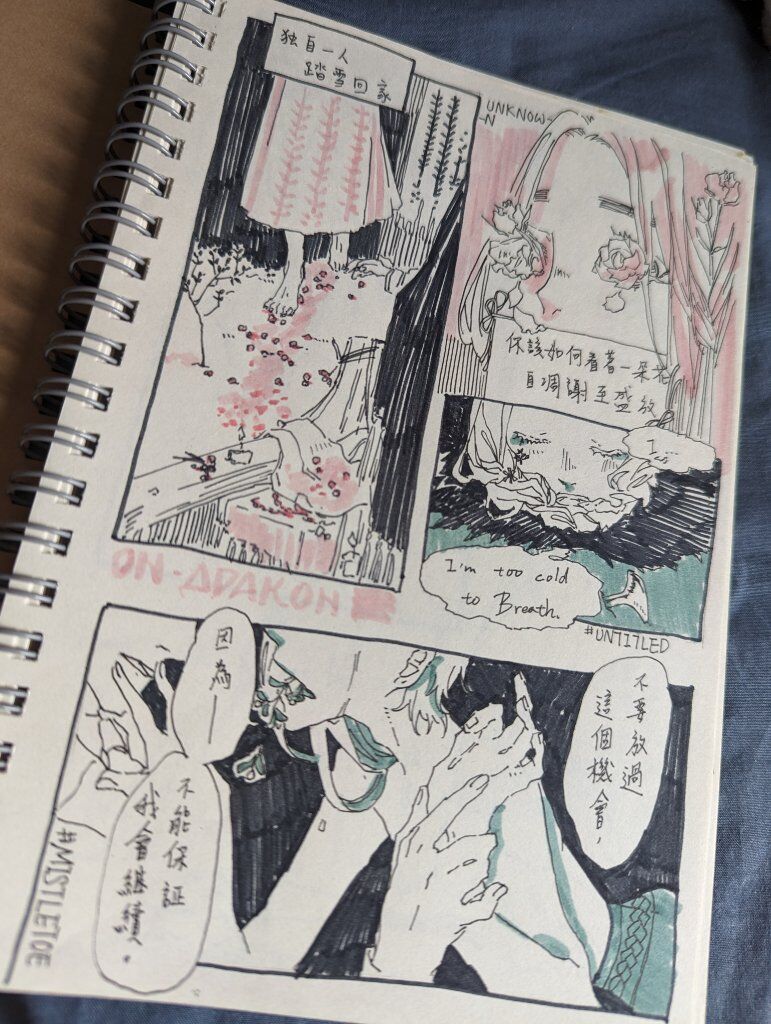 独自一人
踏雪回家
UNKNOW-
N
你該如何看著一朵花
自凋謝至盛放
I...
I'm too cold
to Breath.
#UNTITLED
ON-ДРАКОН
不要放過
這個機會，
因為—
不能保証
我會繼續。
#MISTLETOE